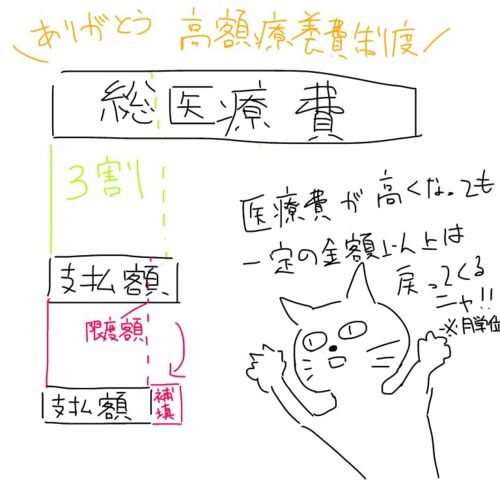 ありがとう 高額療養費制度
総医療費
3割
支払額
限度額
支払額
補填
医療費が高くなっても
一定の金額以上は
戻ってくる
ニャ!!
※月単位